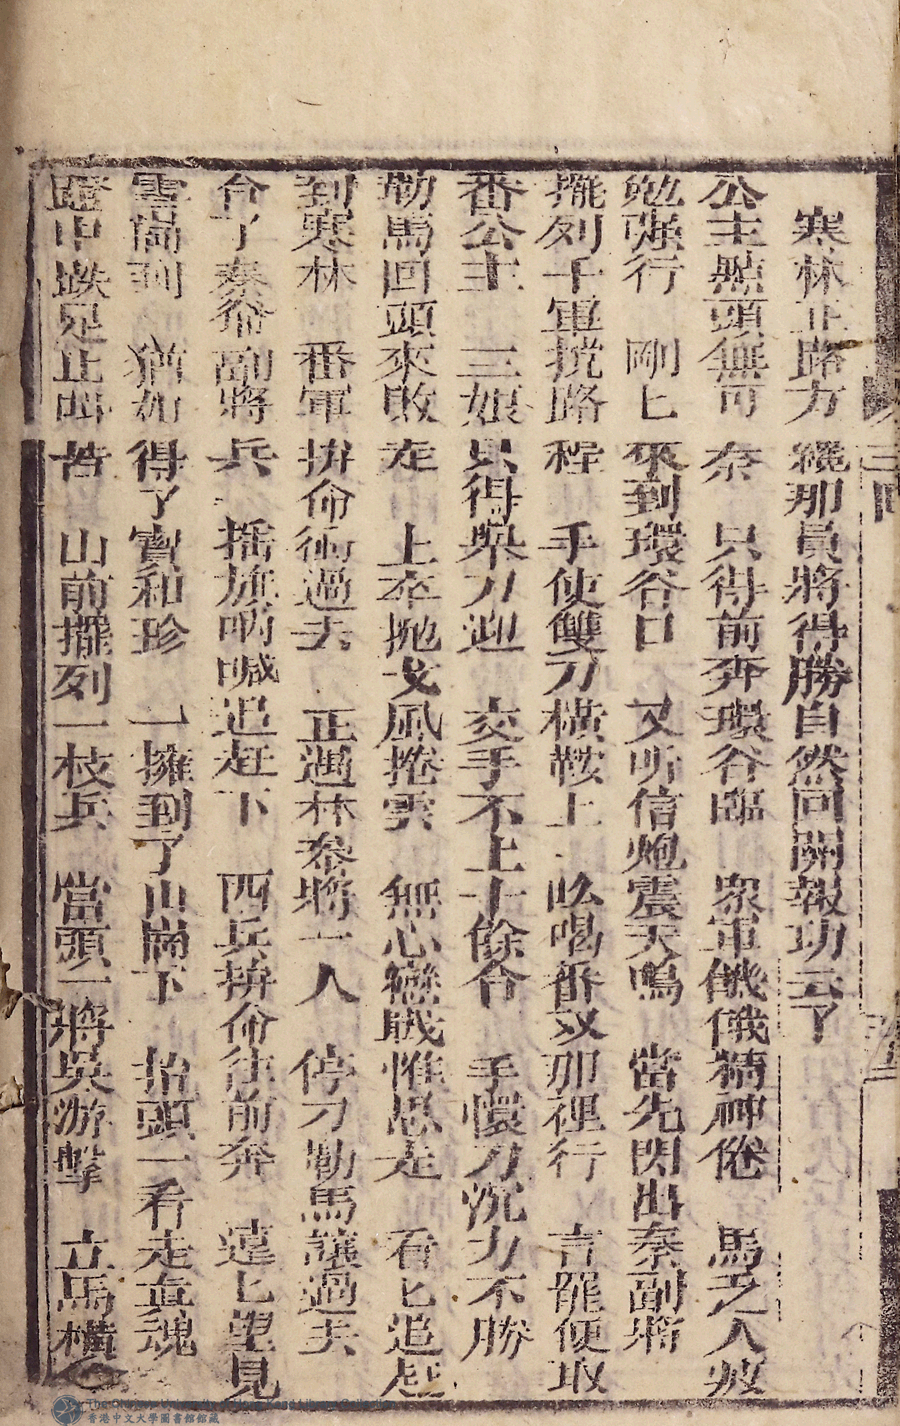 寒林正路方纔那員將得勝自然回關報功去了
公主點頭無可奈 只得前奔環谷臨 衆軍饑餓精神倦 馬乏人疲
勉强行 剛上來到環谷口 又听信炮震天鳴 當先閃出秦副將
擺列千軍搅路程 手使雙刀橫鞍上 吆喝番奴那裡行 言罷便取
番公主 三娘只得舉刀迎 交手不上十餘合 手懷刀沉力不勝
勒馬回頭來敗走 上卒拋戈風捲雲 無心戀戰惟思走 看匕追赶
到寒林 番軍拚命衝過去 正遇林參將一人 停刀勒馬讓過去
合了秦爺副將兵 搖旗吶喊追赶下 西兵拚命往前奔 遠匕望見
雲崗到 猶如得了寶和珍 一擁到了山崗下 抬頭一看走眞魂
蹬中跌足止叫苦 山前擺列一枝兵 當頭一將吳游擊 立馬橫
三回
香港中文大學圖書館館藏